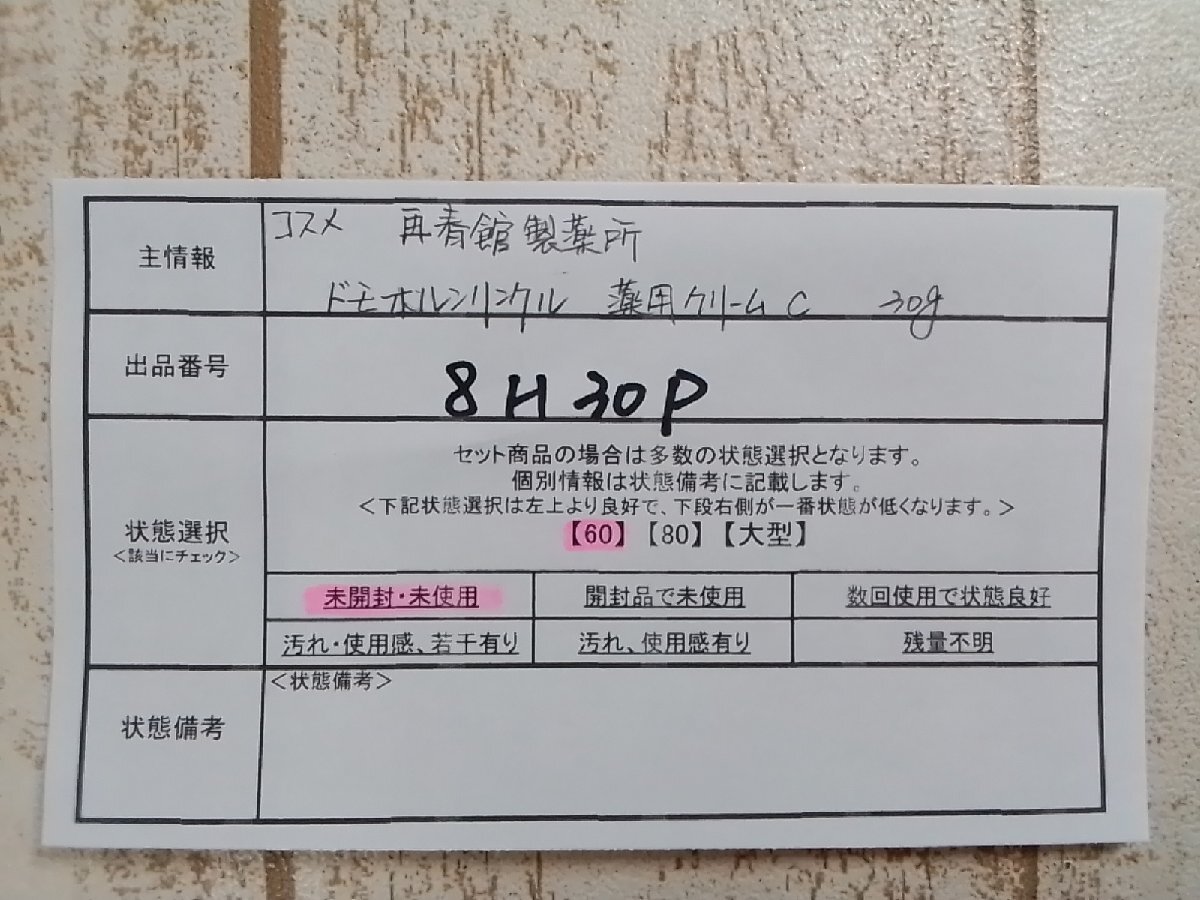 主情報
コスメ 再青館製薬所
ドモホルンリンクル 薬用クリームC 30g
出品番号
8H30P
状態選択
<該当にチェック>
セット商品の場合は多数の状態選択となります。
個別情報は状態備考に記載します。
<下記状態選択は左上より良好で、下段右側が一番状態が低くなります。>
【60】【80】【大型】
未開封・未使用 開封品で未使用 数回使用で状態良好
汚れ・使用感、若干有り 汚れ、使用感有り 残量不明
状態備考
<状態備考>